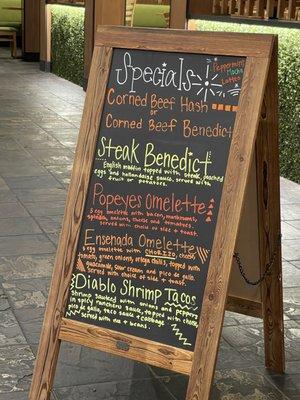 Specials
Peppermint
Mocha
Lattes
Corned Beef Hash
or
Corned Beef Benedict
Steak Benedict
English muffin topped with steak, poached
eggs and hollandaise sauce. served with
fruit or potatoes.
Popeyes Omelette
3 egg omelette with bacon, mushrooms,
spinach, onions, and topped with
choice of side + toast
Ensenada Omelette
3 egg omelette with CHORIZO,
tomato, onions, ortega chili, topped with
guacamole, sour cream and pico de gallo.
served with choice of side + toast.
Diablo Shrimp Tacos
Shrimp sauteed with onions and peppers
in spicy ranchero sauce, topped with
pico de gallo, taco sauce + cabbage.
served with rice + beans.